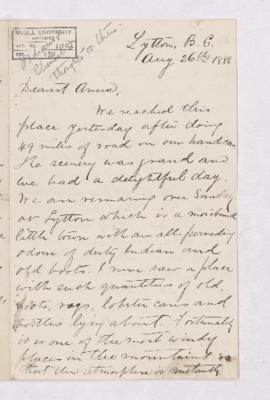 McGILL UNIVERSITY
ARCHIVES
ACC. NO. 1022
REF.
Lytton, B.C.
Aug 26th 1888
Dearest Anna,
We reached this
place yesterday after doing
49 miles of road on our handcar
The scenery was grand and
we had a delightful day.
We are remaining over Sunday
at Lytton which is a moribund
little town with an all pervading
odour of dirty Indian and
old boots. I never saw a place
with such quantities of old
boots, rags, lobster cans and
bottles lying about. Fortunately
it is one of the most windy
places in the mountains so
that the atmosphere is constantly